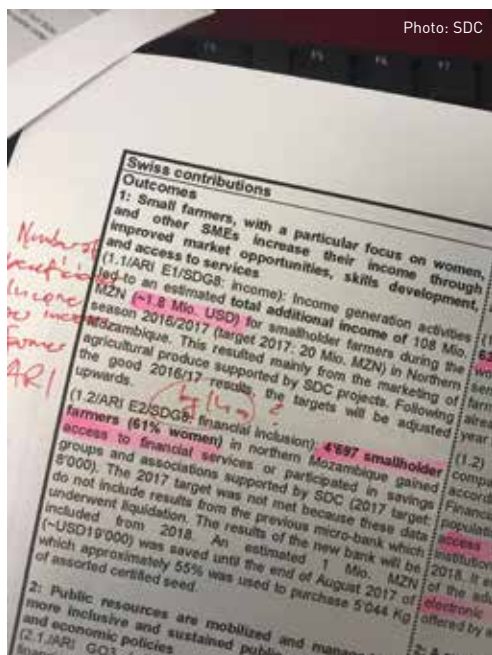 Photo: SDC
Swiss contributions
Outcomes
1: Small farmers, with a particular focus on women,
and other SMEs increase their income through
improved market opportunities, skills development,
and access to services
(1.1/ARI E1/SDG8: income): Income generation activities
led to an estimated total additional income of 108 Mio.
MZN (~1.8 Mio. USD) for smallholder farmers during the
season 2016/2017 (target 2017: 20 Mio. MZN) in Northern
Mozambique. This resulted mainly from the marketing of
agricultural produce supported by SDC projects. Following
the good 2016/17 results, the targets will be adjusted
upwards.
(1.2/ARI E2/SDG8: financial inclusion): 4'697 smallholder
farmers (61% women) in northern Mozambique gained
access to financial services or participated in savings
groups and associations supported by SDC (2017 target:
8'000). The 2017 target was not met because these data
do not include results from the previous micro-bank which
underwent liquidation. The results of the new bank will be
included from 2018. An estimated 1 Mio. MZN
(~USD19'000) was saved until the end of August 2017 of
which approximately 55% was used to purchase 5'044 Kg
of assorted certified seed.
2: Public resources are mobilized and
more inclusive and sustained
and economic policies
(2.1./ARI GO3
Number of
Income
ARI
(1.2)
access
2018. It
electronic
offered by